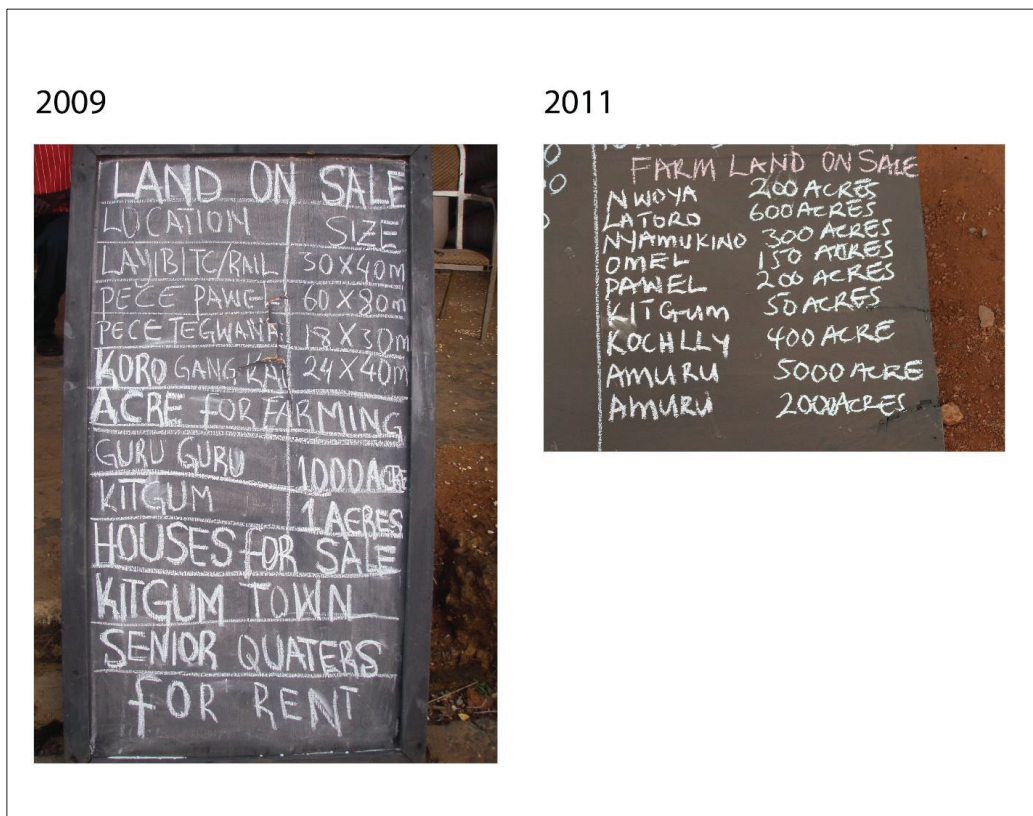 2009
LAND ON SALE
LOCATION SIZE
LAYIBI TC/RAIL 30X40m
PECE PAWEL 60X80m
PECE TEGWANA 18X30m
KORO GANG KAL 24X40m
ACRE FOR FARMING
GURU GURU 1000ACRE
KITGUM 1 ACRES
HOUSES FOR SALE
KITGUM TOWN
SENIOR QUATERS
FOR RENT
2011
FARM LAND ON SALE
NWOYA 200 ACRES
LATORO 600 ACRES
NYAMUKINO 300 ACRES
OMEL 150 ACRES
PAWEL 200 ACRES
KITGUM 50 ACRES
KOCHLLY 400 ACRE
AMURU 5000 ACRE
AMURU 2000ACRES